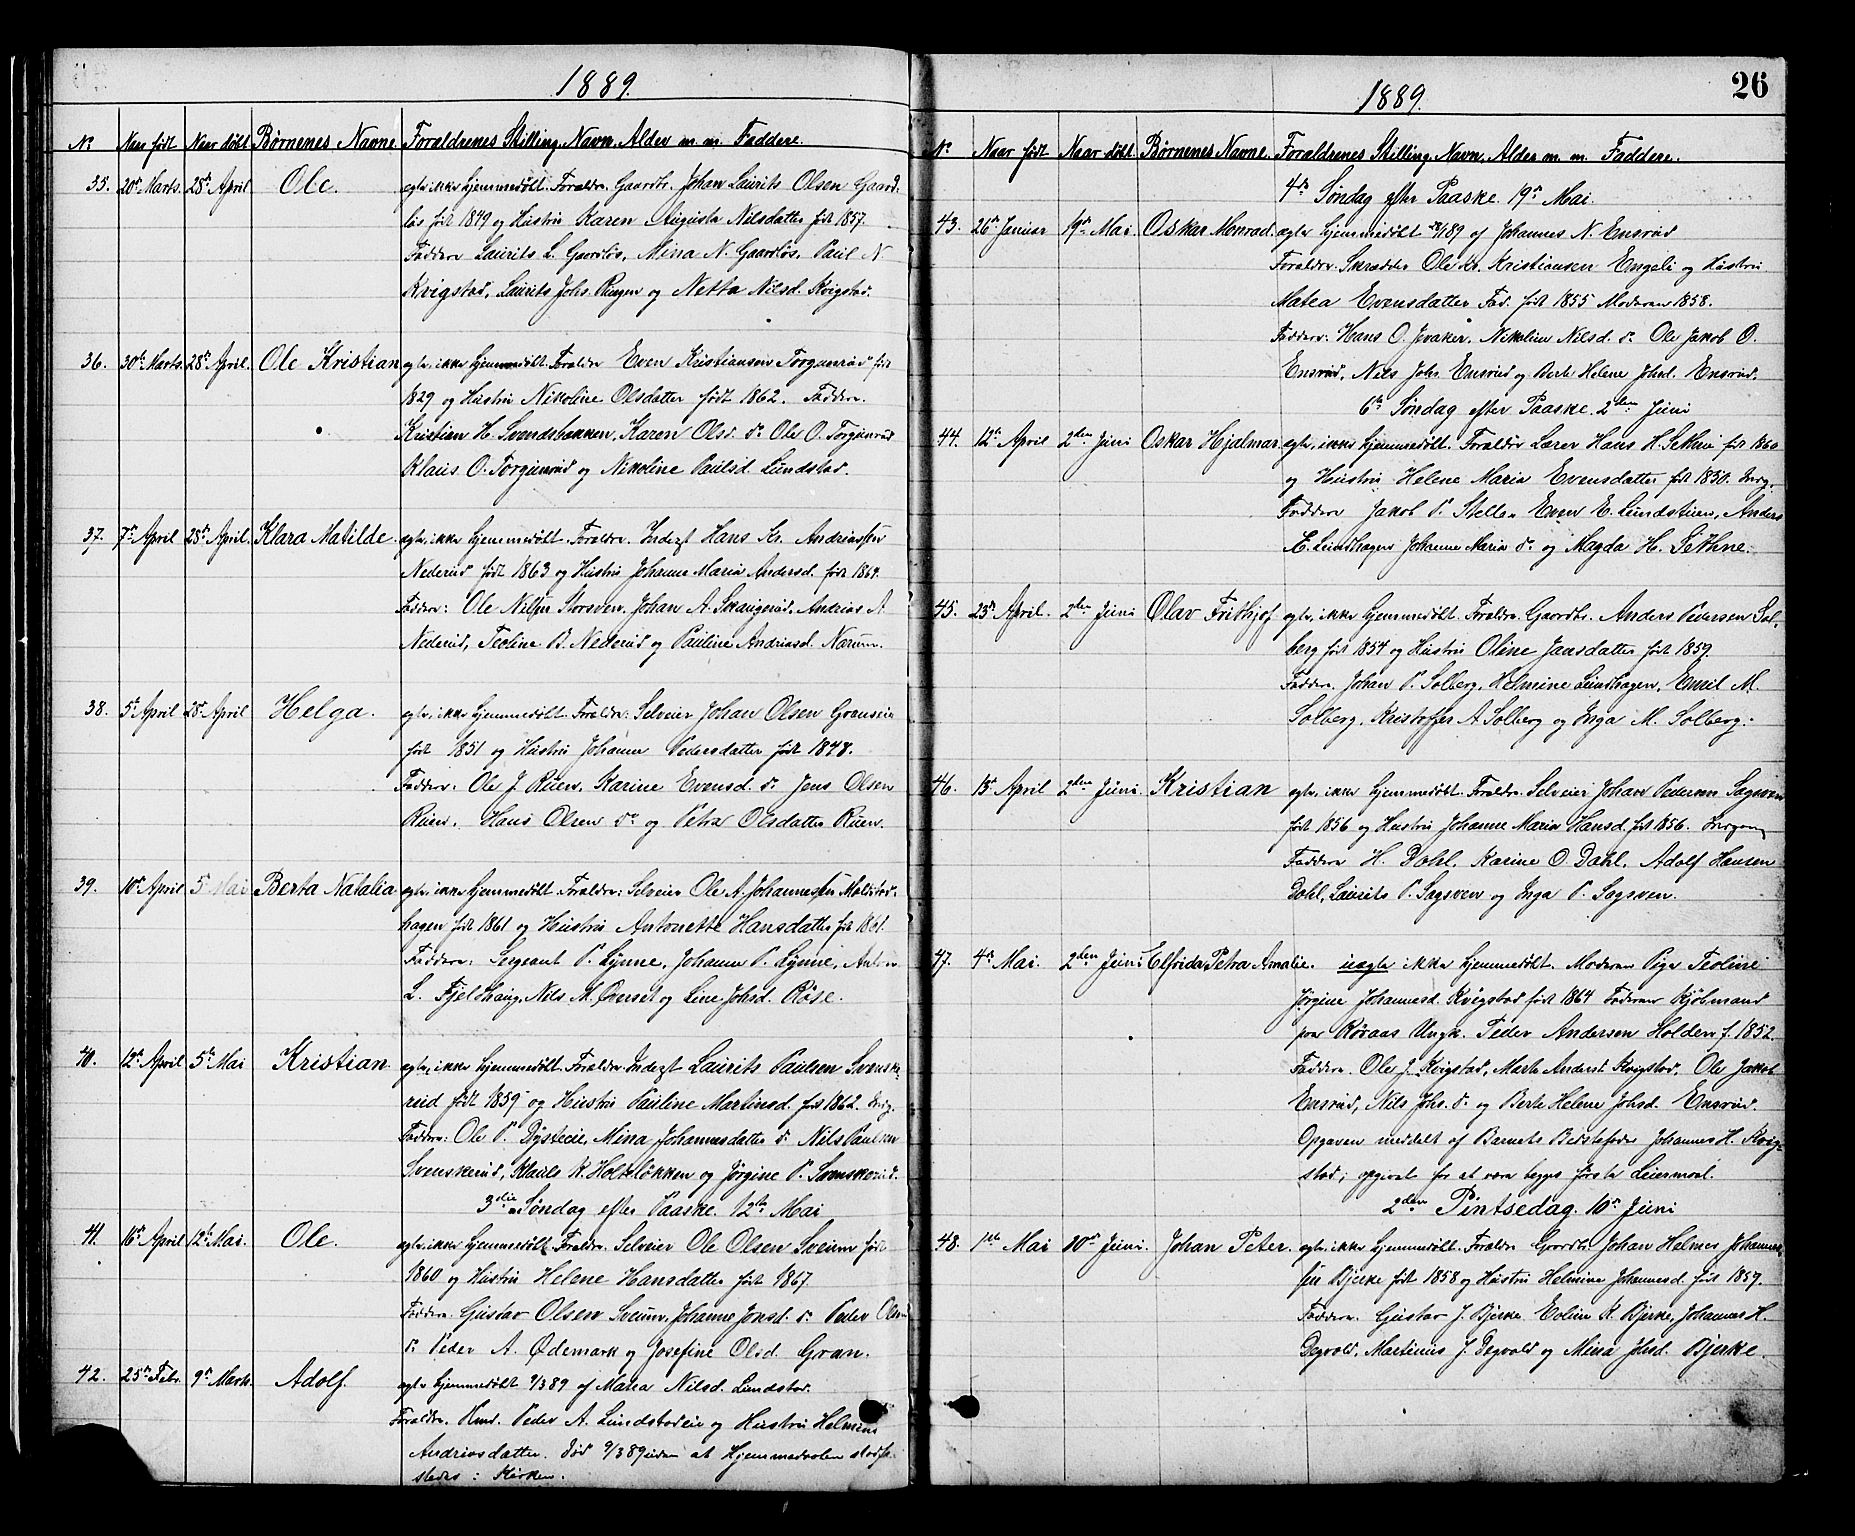 1889.
No Naar født Naar døbt Børnenes Navne Forældrenes Stilling, Navn, Alder m. m. Faddere.
35. 20de Marts. 28de April Ole. egte, ikke hjemmedøbt. Forældre. Gaardbr. Johan Laurits Olsen Gaard-
løs født 1849 og Hustru Karen Augusta Nilsdatter født 1857.
Faddere Laurits L. Gaardløs, Mina N. Gaardløs, Paul N.
Kvigstad, Laurits Johs. Ringen og Netta Nilsd. Kvigstad.
36. 30te Marts. 28de April. Ole Kristian egte, ikke hjemmedøbt. Forældre Even Kristiansen Torgunrud født
1829 og Hustru Nikoline Olsdatter født 1862. Faddere.
Kristian H. Svendsbakken, Karen Olsd. do Ole O. Torgunrud
Klaus O. Torgunrud og Nikoline Paulsd. Lundstad.
37. 7de April 28de April. Klara Matilde. egte, ikke hjemmedøbt. Forældre. Inderst Hans Kr. Andriassen
Nederud født 1863 og Hustru Johanne Maria Andersd. født 1864.
Faddere: Ole Nilsen Storsven, Johan A. Skaugerud, Andrias A
Nederud, Teoline B. Nederud og Pauline Andriasd. Narum.
38. 5te April 28de April Helga. egte, ikke hjemmedøbt. Forældre: Selveier Johan Olsen Granseie
født 1851 og Hustru Johanne Pedersdatter født 1848.
Faddere: Ole J. Ruen, Karine Evensd. do Jens Olsen
Ruen, Hans Olsen do og Petra Olsdatter Ruen.
39. 10de April 5te Mai Berta Natalia egte, ikke hjemmedøbt. Forældre: Selveier Ole A. Johannessen Molstad-
hagen født 1861 og Hustru Antonette Hansdatter født 1861.
Faddere: Sergeant P. Lynne, Johanne P. Lynne, Anton
L. Fjeldhaug, Nils M. Øverset og Line Johsd. Røse.
40. 12te April 5te Mai Kristian egte, ikke hjemmedøbt. Forældre. Inderst Laurits Paulsen Svenske-
rud født 1859 og Hustru Pauline Martinsd. født 1862. Indg.
Faddere: Ole P. Dysteeie, Mina Johannesdatter do Nils Paulsen
Svenskerud, Klaus K. Holtsløkken og Jørgine P. Svenskerud.
3die Søndag efter Paaske. 12te Mai
41. 16de April 12te Mai. Ole. egte, ikke hjemmedøbt. Forældre. Selveier Ole Olsen Sveum født
1860 og Hustru Helene Hansdatter født 1867.
Faddere: Gustav Olsen Sveum, Johanne Jonsd. do Peder Olsen
do Peder A. Ødemark og Josefine Olsd. Gran.
42. 25de Febr. 9de Marts. Adolf. egte hjemmedøbt 9/3 89 af Maria Nilsd. Lundstad.
Forældre. Hmd. Peder A. Lundstadeie og Hustru Helmine
Andriasdatter. død 9/3 89 uden at Hjemmedaaben stadfæ-
stedes i Kirken.
26
1889.
No Naar født Naar døbt Børnenes Navne. Forældrenes Stilling, Navn, Alder m. m. Faddere.
4de Søndag efter Paaske. 19de Mai.
43. 26de Januar 19de Mai. Oskar Monrad. egte hjemmedøbt 89 af Johannes N. Ensrud
Forældre. Skrædder Ole Kr. Kristiansen Engeli og Hustru
Matea Evensdatter Fad. født 1855 Moderen 1858.
Faddere: Hans O. Jevaker, Nikoline Nilsd. do Ole Jakob O.
Ensrud, Nils Johs. Ensrud og Berte Helene Johsd. Ensrud.
6te Søndag efter Paaske. 2den Juni
44. 12te April 2den Juni Oskar Hjalmar egte, ikke hjemmedøbt. Forældre Lærer Hans H. Sethne født 1860
og Hustru Helene Maria Evensdatter født 1850. Indg.
Faddere Jakob P. Stelle, Even E. Lundstuen, Anders
E. Lundhagen Johanne Maria do og Magda H. Sethne.
45. 23de April. 2den Juni Olav Frithjof egte, ikke hjemmedøbt. Forældre Gaardbr. Anders Pedersen Sol-
berg født 1854 og Hustru Oline Jansdatter født 1859.
Faddere. Johan P. Solberg, Helmine Lundhagen, Emil M.
Solberg, Kristoffer A. Solberg og Inga M. Solberg.
46. 15de April 2den Juni. Kristian egte, ikke hjemmedøbt. Forældre. Selveier Johan Pedersen Sagsven
født 1856 og Hustru Johanne Maria Hansd. født 1856. Indgang
Faddere H. Dahl, Karine O. Dahl, Adolf Hansen
Dahl, Laurits P. Sagsven og Inga P. Sagsven.
47. 4de Mai. 2den Juni Elfrida Petra Amalie. uegte ikke hjemmedøbt. Moderen Pige Teoline
Jørgine Johannesd. Kvigstad født 1864 Faderen Kjøbmand
paa Røraas Ungk. Peder Andersen Holden f. 1852.
Faddere. Ole J. Kvigstad, Marte Andersd. Kvigstad, Ole Jakob
Ensrud, Nils Johs. do og Berte Helene Johsd. Ensrud.
Opgaven meddelt af Barnets Bedstefader Johannes H. Kvig-
stad; opgivet for at være begges første Leiermaal.
2den Pintsedag. 10de Juni
48. 1ste Mai 10de Juni. Johan Peter. egte, ikke hjemmedøbt. Forældre Gaardbr. Johan Helmer Johannes-
sen Bjerke født 1858 og Hustru Helmine Johannesd. født 1857.
Faddere. Gustav J. Bjerke, Eoline K. Bjerke, Johannes H.
Degvold, Martinus J. Degvold og Mina Johsd. Bjerke.